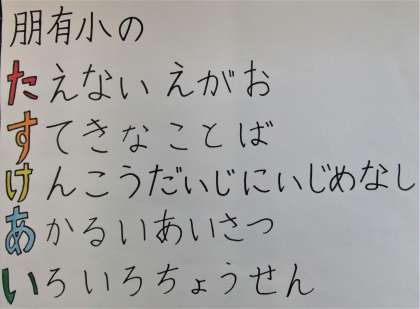 朋有小の
たえない えがお
すてきな ことば
けんこうだいじにいじめなし
あかるいあいさつ
いろいろちょうせん